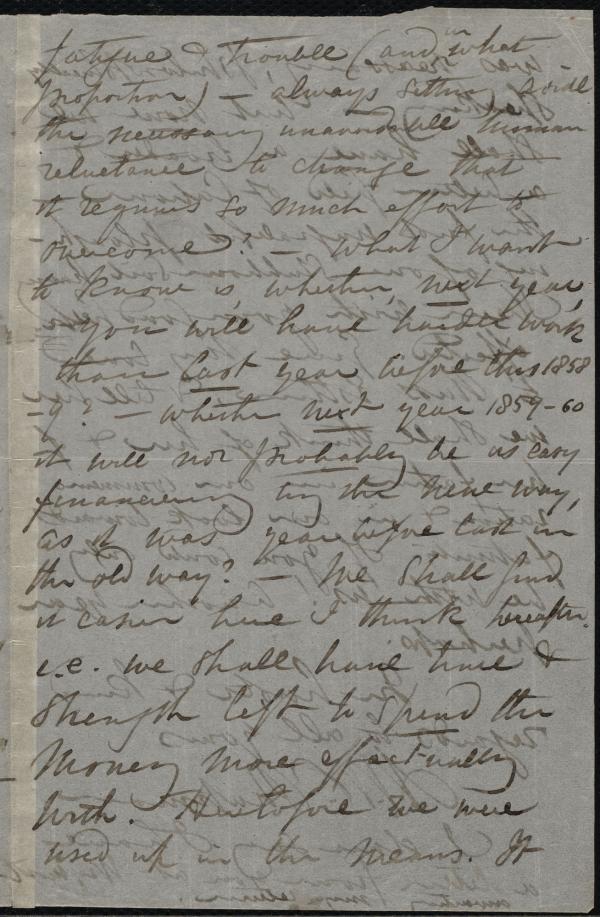 fatigue & trouble (and in what
proportion) — always setting aside
the necessary unavoidable human
reluctance to change that
it requires so much effort to
overcome? — What I want
to know is, whether, next year,
you will have harder work
than last year before this 1858
-9? — whether next year 1859-60
it will not probably be as easy
financiering by the new way,
as it was year before last in
the old way? — We shall find
it easier here I think hereafter.
i.e. we shall have time &
strength left to spend the
money more effectually
with. Heretofore we were
used up in the means. It